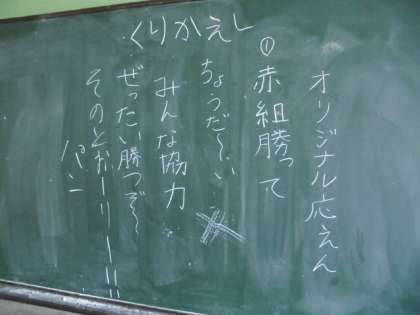 くりかえし
オリジナル応えん
①赤組勝って
ちょうだ～い
みんな協力
ぜったい勝つぞ～
そのとおーりー!!
パン